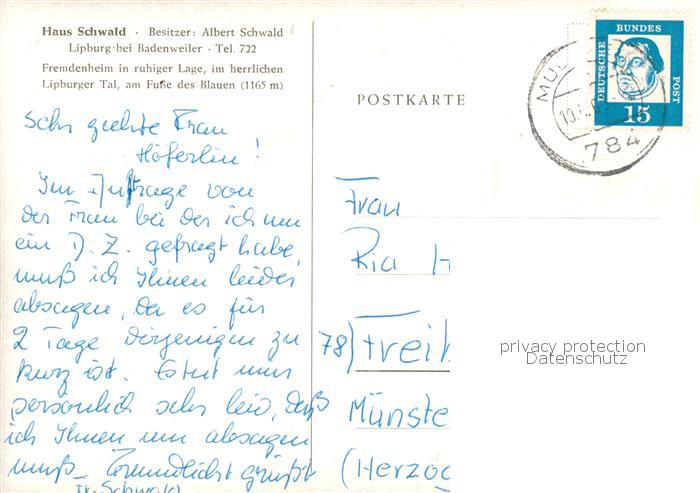 Haus Schwald · Besitzer: Albert Schwald
Lipburg bei Badenweiler · Tel. 722
Fremdenheim in ruhiger Lage, im herrlichen
Lipburger Tal, am Fuße des Blauen (1165 m)
POSTKARTE
DEUTSCHE BUNDES POST
15
MÜL
10.
784
Sehr geehrte Frau
Höferlin!
Im Auftrage von
der Frau bei der ich um
ein D. Z. gefragt habe,
muß ich Ihnen leider
absagen, da es für
2 Tage derjenigen zu
kurz ist. Es tut mir
persönlich sehr leid, daß
ich Ihnen nun absagen
muß. Freundlichst grüßt
Fr. Schwald
Frau
Ria H
78) Freib
Münste
(Herzog
privacy protection
Datenschutz